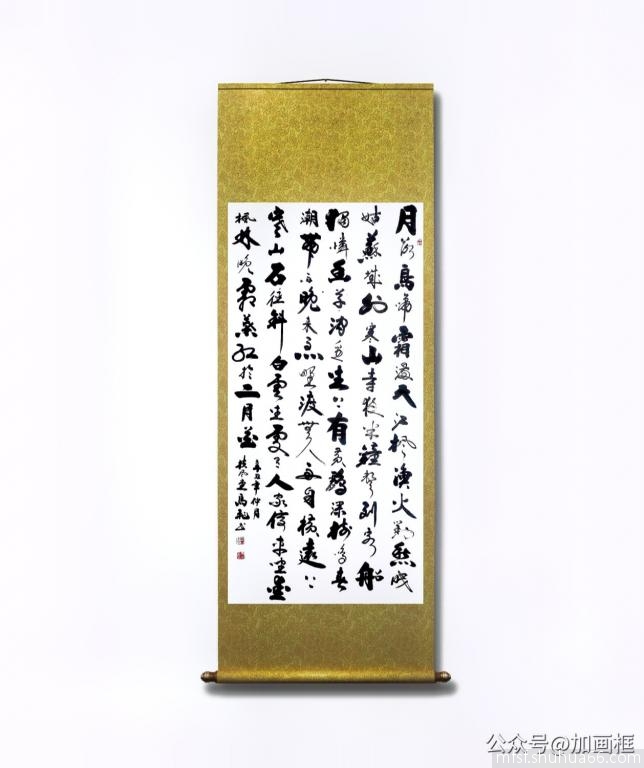 月落烏啼霜滿天江楓漁火對愁眠
姑蘇城外寒山寺夜半鐘聲到客船
獨憐幽草澗邊生上有黃鸝深樹鳴春
潮帶雨晚來急野渡無人舟自橫遠上
寒山石徑斜白雲生處有人家停車坐愛
楓林晚霜葉紅於二月花
辛丑年仲月
公众号@加画框